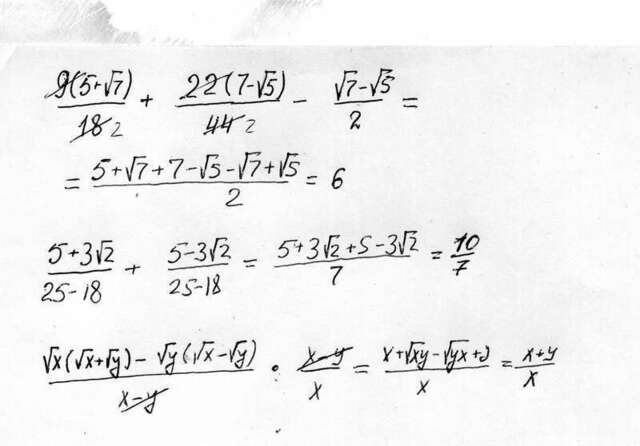 9(5+√7)/18 2 + 22(7-√5)/44 2 - (√7-√5)/2 =
= (5+√7+7-√5-√7+√5)/2 = 6
(5+3√2)/(25-18) + (5-3√2)/(25-18) = (5+3√2+5-3√2)/7 = 10/7
(√x(√x+√y)-√y(√x-√y))/(x-y) · (x-y)/x = (x+√xy-√yx+y)/x = (x+y)/x